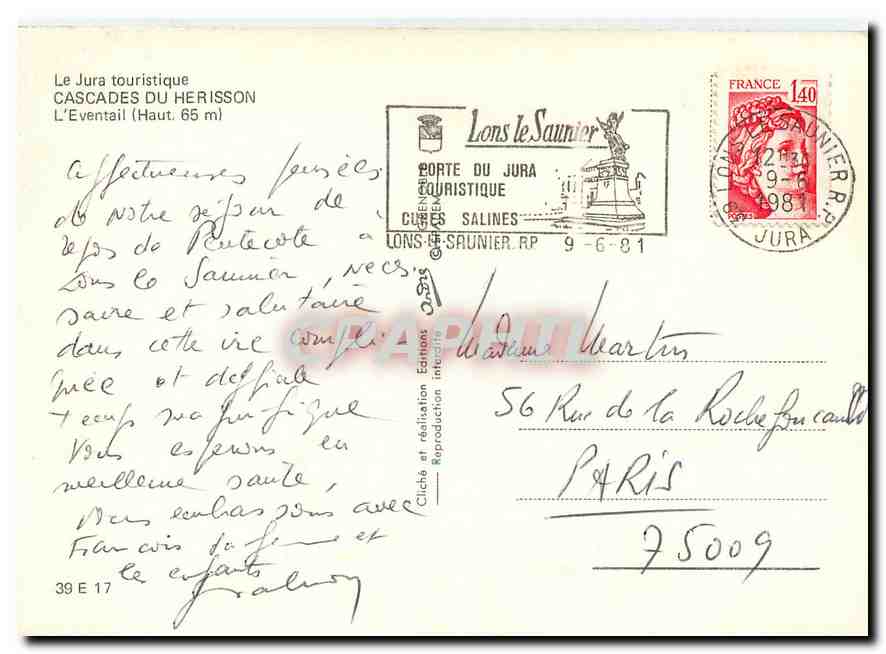 Le Jura touristique
CASCADES DU HERISSON
L'Eventail (Haut. 65 m)
Affectueuses pensées
de notre séjour de
repos de Pentecote à
Lons le Saunier, néces
saire et salutaire
dans cette vie compli-
quée et difficile
temps magnifique
Vous esperons en
meilleure santé,
Vous embrassons avec
Francois sa femme et
les enfants
39 E 17
Cliché et réalisation Editions André
Reproduction interdite
GRENOBLE
Lons le Saunier
PORTE DU JURA
TOURISTIQUE
CURES SALINES
LONS-LE-SAUNIER.RP 9-6-81
FRANCE
1,40
39 LONS LE SAUNIER R.P.
12H30
9-6
1981
JURA
Madame Martin
56 Rue de la Rochefoucauld
PARIS
75009
CPAPHIL